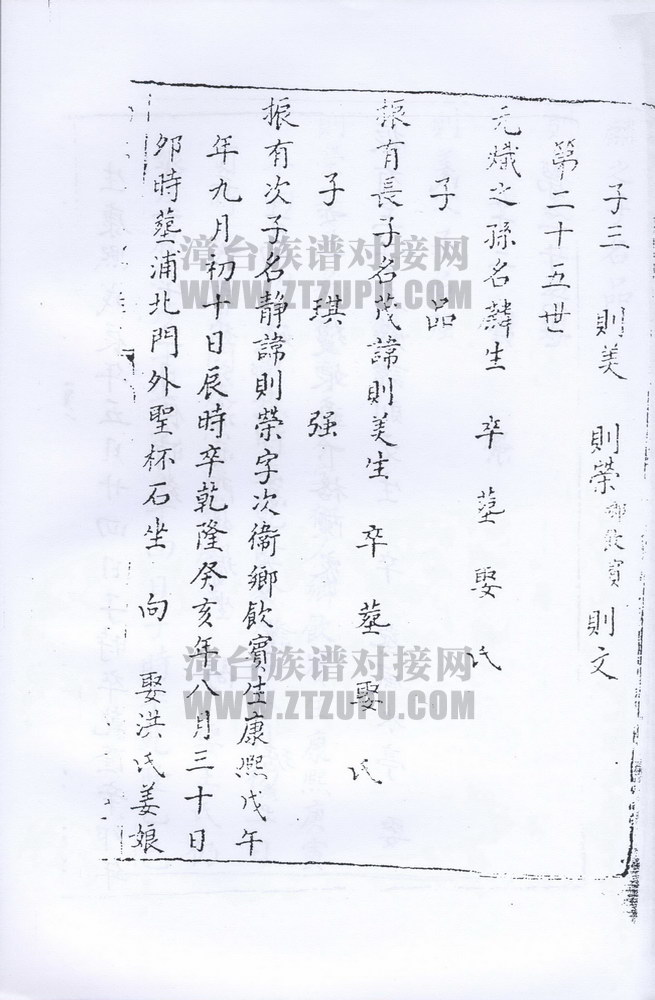 子三 則美 則榮鄉飲賓 則文
第二十五世
元熾之孫名麟生 卒 墓 娶 氏
子 品
振有長子名茂諱則美生 卒 墓 娶 氏
子 琪 强
振有次子名靜諱則榮字次衞鄉飲賓生康熙戊午
年九月初十日辰時卒乾隆癸亥年八月三十日
卯時墓浦北門外聖杯石坐 向 娶洪氏姜娘
漳台族谱对接网
WWW.ZTZUPU.COM
漳台族谱对接网
WWW.ZTZUPU.COM